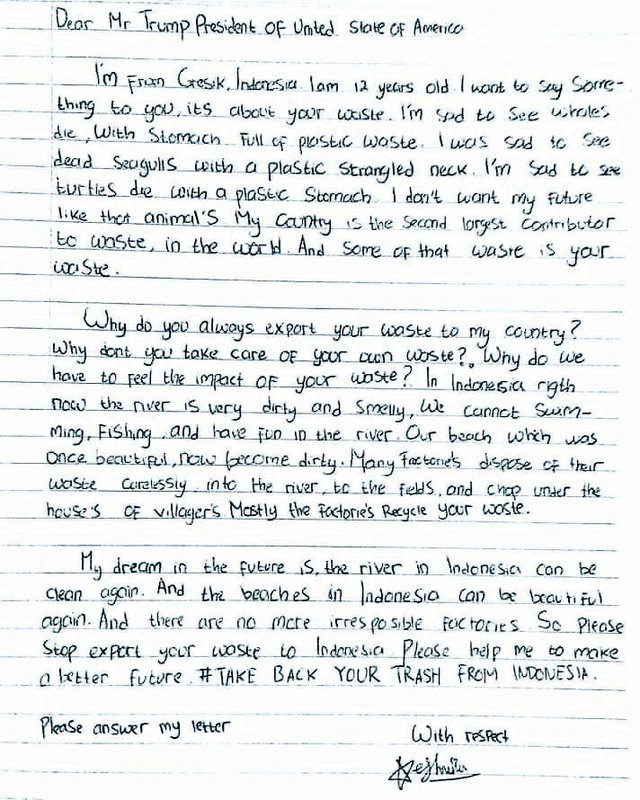 Dear Mr Trump President of United State of America
I'm From Gresik, Indonesia I am 12 years old I want to say Some-
thing to you, its about your waste. I'm sad to see whale's
die, With Stomach full of plastic waste. I was sad to see
dead seagulls with a plastic strangled neck. I'm sad to see
turtles die with a plastic stomach I don't want my future
like that animal's My country is the second largest contributor
to waste, in the world. And some of that waste is your
waste.
Why do you always export your waste to my country?
Why dont you take care of your own waste?. Why do we
have to feel the impact of your waste? In Indonesia rigth
now the river is very dirty and smelly, We cannot swim-
ming, Fishing, and have fun in the river. Our beach which was
once beautiful, now become dirty. Many Factorie's dispose of their
waste carelessly into the river, to the fields, and chop under the
house's of villager's Mostly the factorie's Recycle your waste.
My dream in the future is, the river in Indonesia can be
clean again. And the beaches in Indonesia can be beautiful
again. And there are no more irresposible factories So Please
Stop export your waste to Indonesia Please help me to make
a better future #TAKE BACK YOUR TRASH FROM INDONESIA.
Please answer my letter
With respect